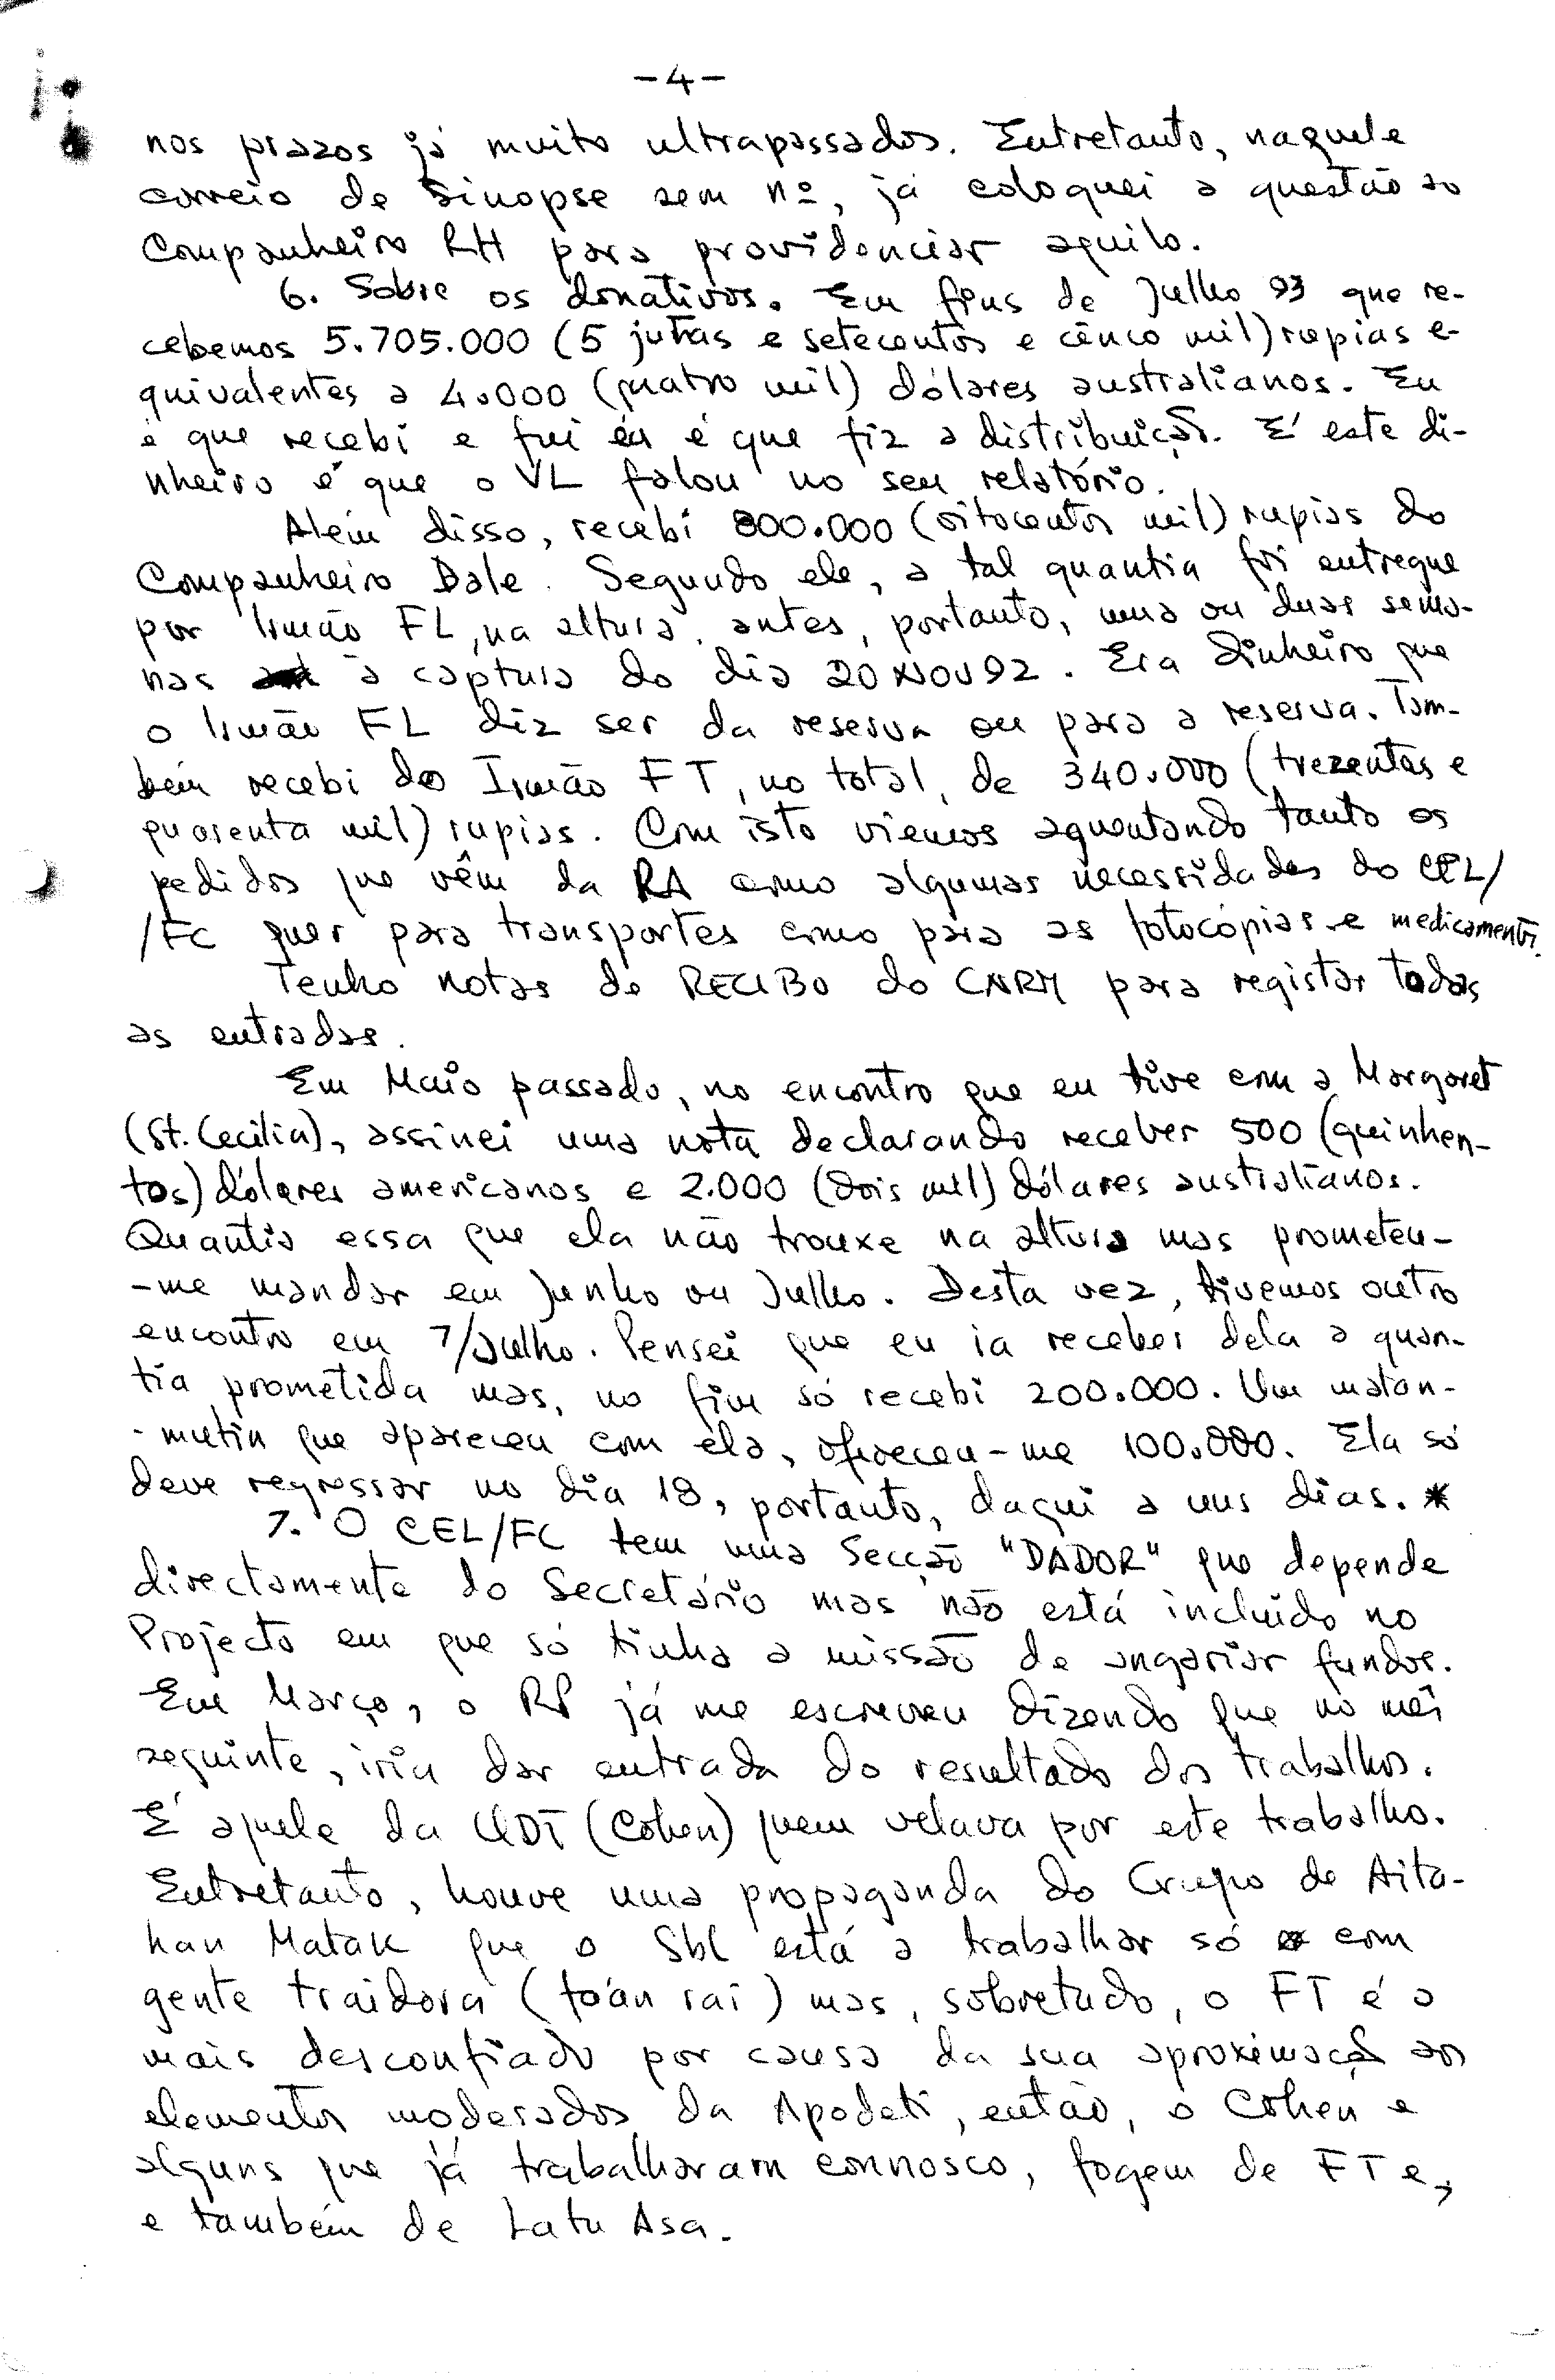 -4-
nos prazos já muito ultrapassados. Entretanto, naquele
correio de Sinopse sem nº, já coloquei a questão ao
Companheiro RH para providenciar aquilo.
6. Sobre os donativos. Em fins de Julho 93 que re-
cebemos 5.705.000 (5 jutas e setecentos e cinco mil) rupias e-
quivalentes a 4.000 (quatro mil) dólares australianos. Eu
é que recebi e fui eu é que fiz a distribuição. É este di-
nheiro é que o VL falou no seu relatório.
Além disso, recebi 800.000 (oitocentos mil) rupias do
Companheiro Dale. Segundo ele, a tal quantia foi entregue
por Irmão FL, na altura, antes, portanto, uma ou duas sema-
nas à captura do dia 20 NOV 92. Era dinheiro que
o Irmão FL diz ser da reserva ou para a reserva. Tam-
bém recebi do Irmão FT, no total, de 340.000 (trezentas e
quarenta mil) rupias. Com isto viemos aguentando tanto os
pedidos que vêm da RA como algumas necessidades do CEL/
/FC quer para transportes como para as fotocópias e medicamentos.
Tenho notas de RECIBO do CNRM para registar todas
as entradas.
Em Maio passado, no encontro que eu tive com a Margaret
(St. Cecilia), assinei uma nota declarando receber 500 (quinhen-
tos) dólares americanos e 2.000 (dois mil) dólares australianos.
Quantia essa que ela não trouxe na altura mas prometeu-
-me mandar em Junho ou Julho. Desta vez, tivemos outro
encontro em 7/Julho. Pensei que eu ia receber dela a quan-
tia prometida mas, no fim só recebi 200.000. Um malan-
-mutin que apareceu com ela, ofereceu-me 100.000. Ela só
deve regressar no dia 18, portanto, daqui a uns dias. *
7. O CEL/FC tem uma Secção "DADOR" que depende
directamente do Secretário mas não está incluído no
Projecto em que só tinha a missão de angariar fundos.
Em Março, o RP já me escreveu dizendo que no mês
seguinte, iria dar entrada do resultado dos trabalhos.
É aquele da UDT (Cohen) quem velava por este trabalho.
Entretanto, houve uma propaganda do Grupo de Aita-
han Matak que o Sbl está a trabalhar só com
gente traidora (to'án rai) mas, sobretudo, o FT é o
mais desconfiado por causa da sua aproximação aos
elementos moderados da Apodeti, então, o Cohen e
alguns que já trabalharam connosco, fogem de FT e,
e também de Latu Asa.